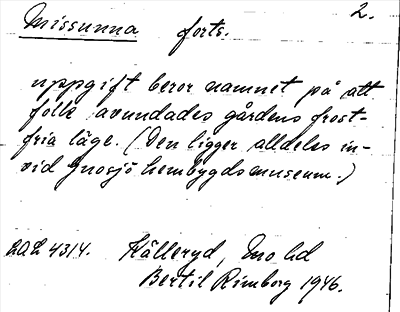 Missunna forts. 2.
uppgift beror namnet på att
folk avundades gårdens frost-
fria läge. (Den ligger alldeles in-
vid Gnosjö hembygdsmuseum.)
Källeryd, Mo hd
Bertil Rimborg 1946.